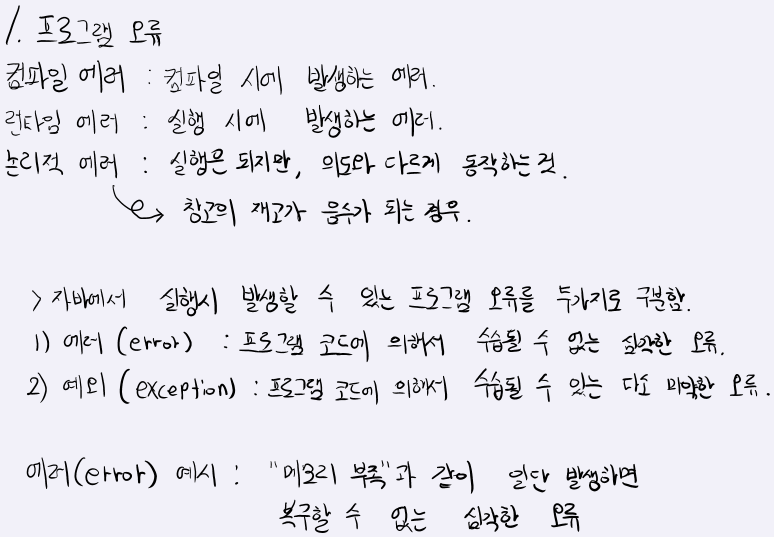 1. 프로그램 오류
컴파일 에러 : 컴파일 시에 발생하는 에러.
런타임 에러 : 실행 시에 발생하는 에러.
논리적 에러 : 실행은 되지만, 의도와 다르게 동작하는 것.
창고의 재고가 음수가 되는 경우.
> 자바에서 실행시 발생할 수 있는 프로그램 오류를 두가지로 구분함.
1) 에러 (error) : 프로그램 코드에 의해서 수습될 수 없는 심각한 오류.
2) 예외 (exception) : 프로그램 코드에 의해서 수습될 수 있는 다소 미약한 오류.
에러(error) 예시 : "메모리 부족"과 같이 일단 발생하면
복구할 수 없는 심각한 오류